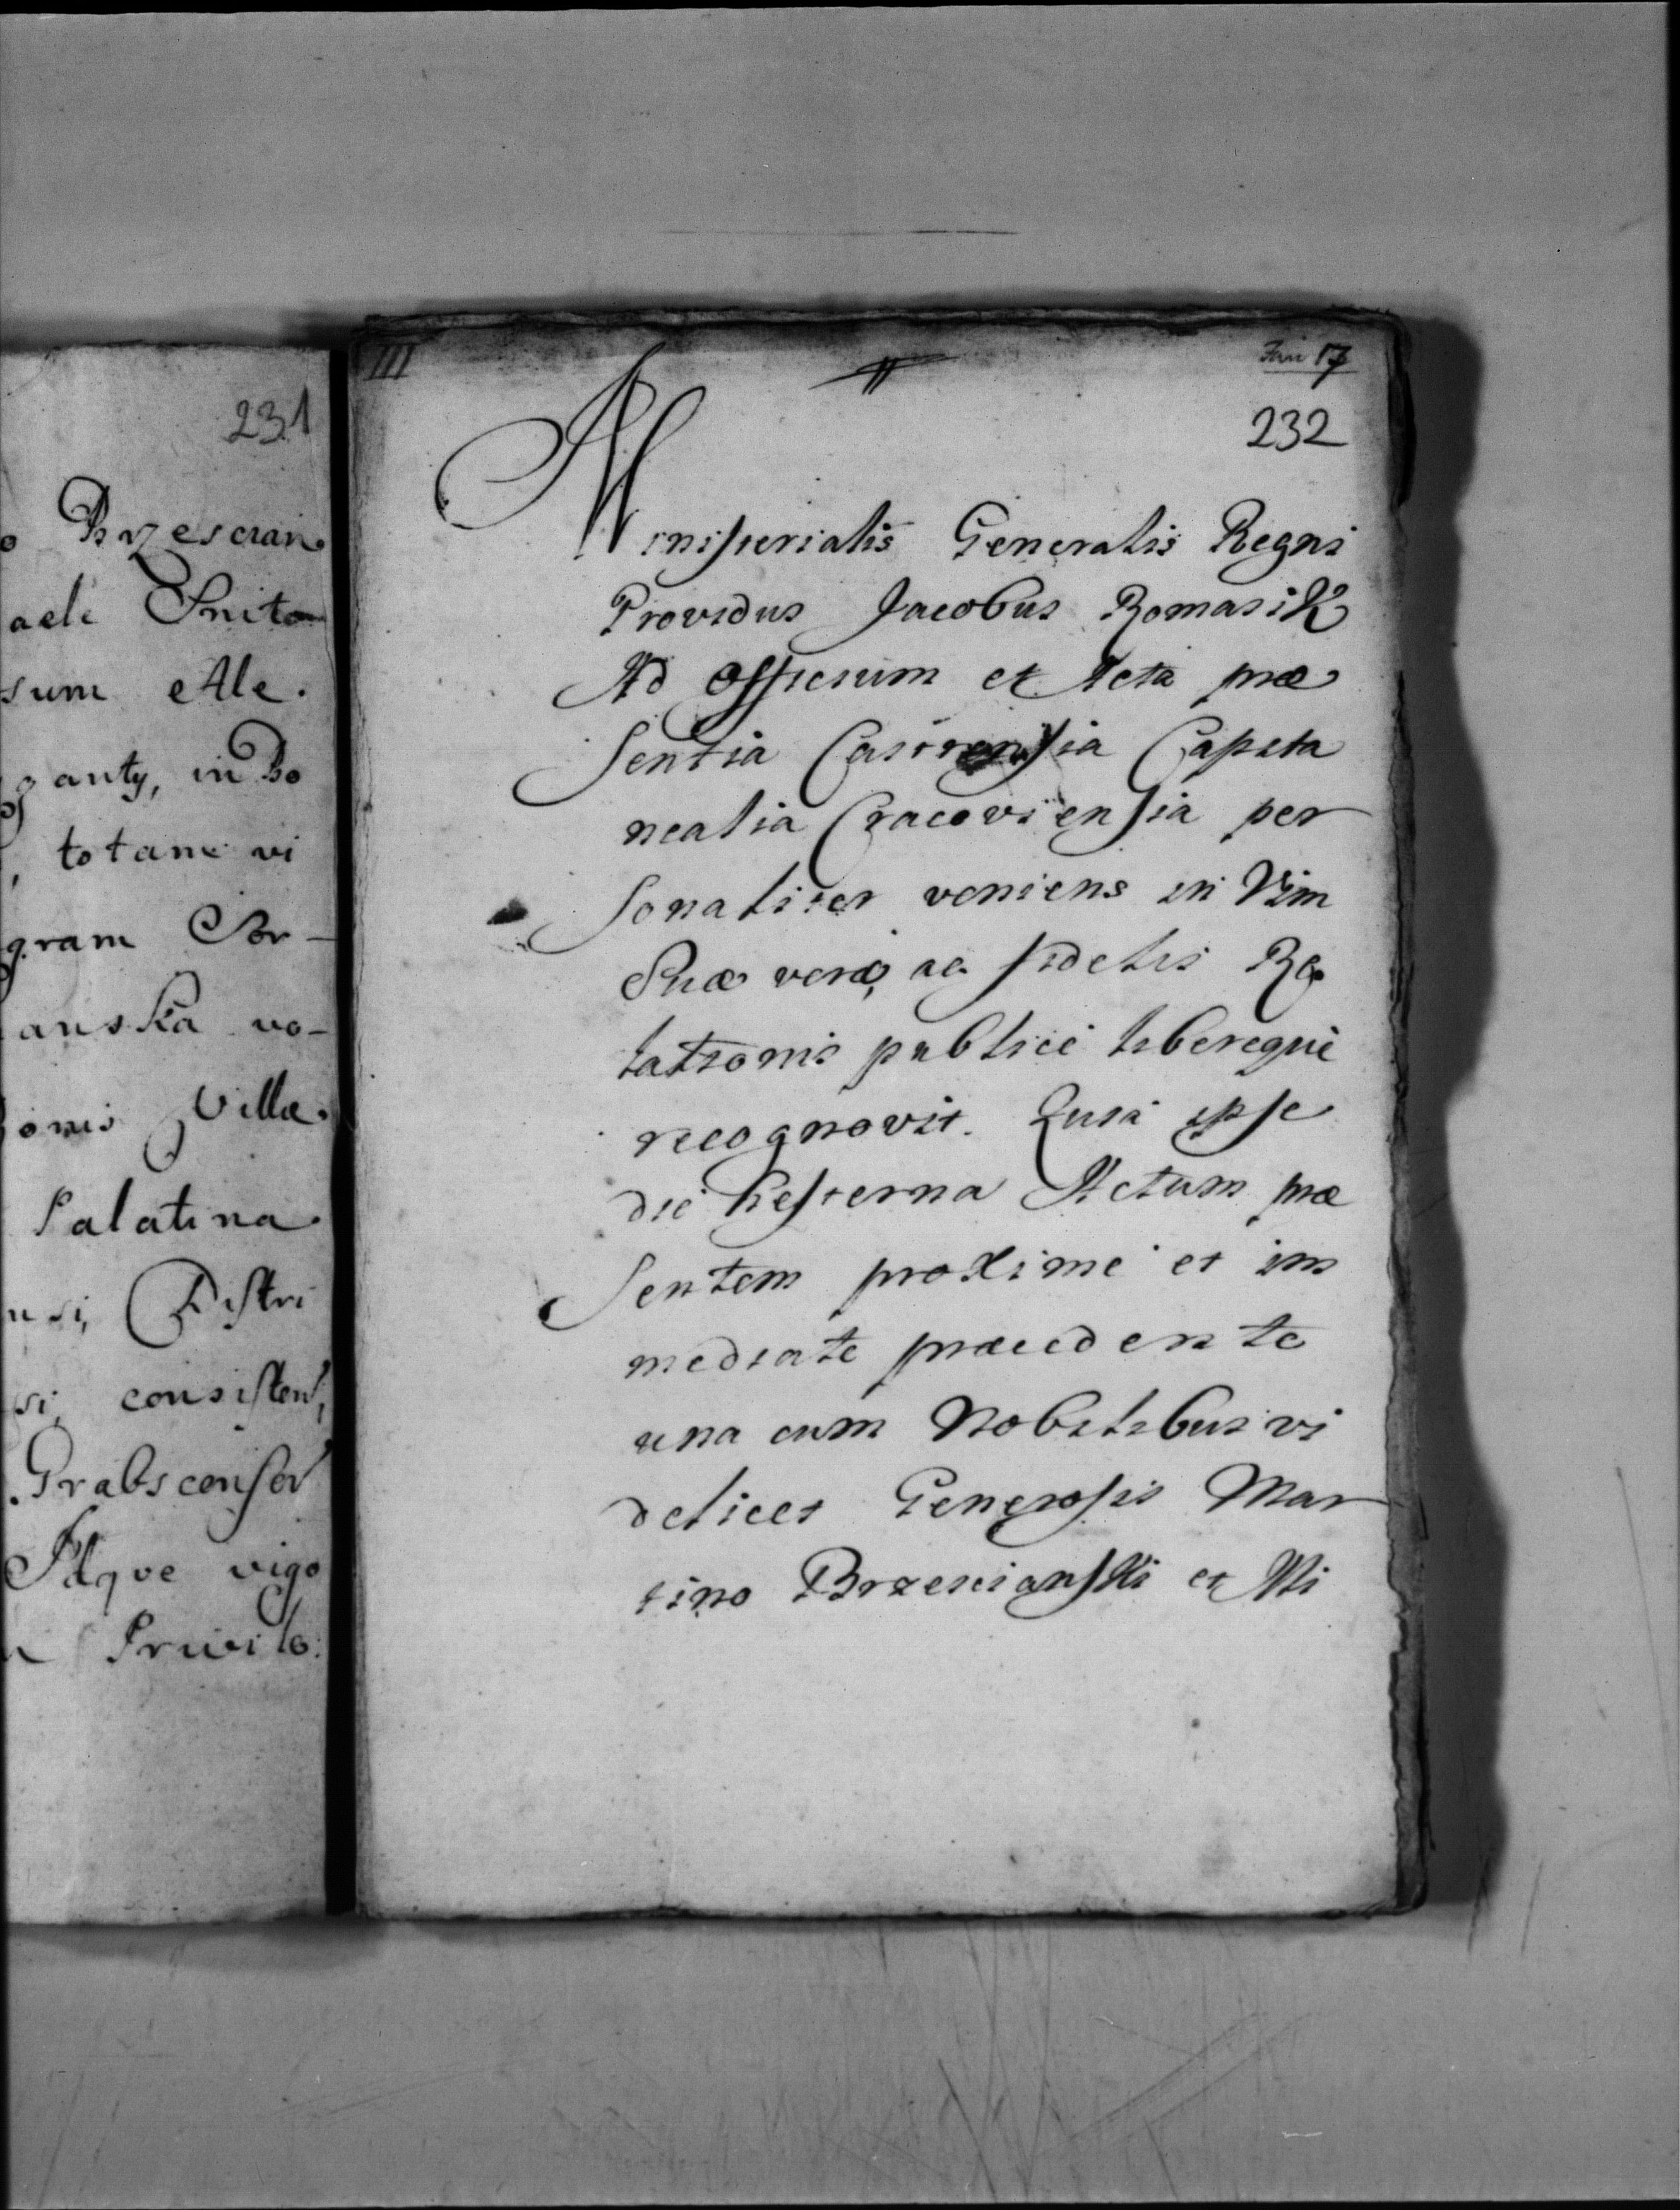 231
Brzescian
aele Snito
sum et Ale.
ganty, in Bo
, totam vi
gram Sor-
anska vo-
onis Villæ.
Palatina
nsi, Distri
si, consisten,
Grabsconser
Idque vigo
Privile:
III
17
232
Ministerialis Generalis Regni
Providus Jacobus Romasik
Ad officium et Acta præ
sentia Castrensia Capita
nealia Cracoviensia per
sonaliter veniens in Vim
Suæ veræ, ac fidelis Re
lationis publicè liberequè
recognovit. Quia ipse
diè hesterna Actum præ
sentem proximè et im
mediate præcedente
una cum Nobilibus vi
delicet Generosis Mar
tino Brzescianski et Mi